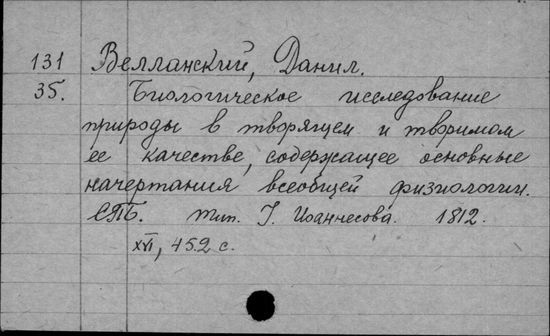 131 Велланский, Данил.
35. Биологическое исследование
природы в творящем и творимом
ее качестве, содержащее основные
начертания всеобщей физиологии.
СПБ. тип. I. Иоаннесова. 1812.
XVI, 452 с.